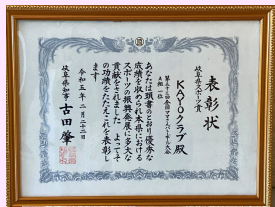 表彰状
岐阜県スポーツ賞
KAYOクラブ殿
全国ママさんバレーボール大会
一位
あなたは頭書のとおり優秀な
成績を収められ本県における
スポーツの振興発展に多大な
貢献をされました よってそ
の功績をたたえこれを表彰し
ます
令和五年二月二十二日
岐阜県知事 古田肇